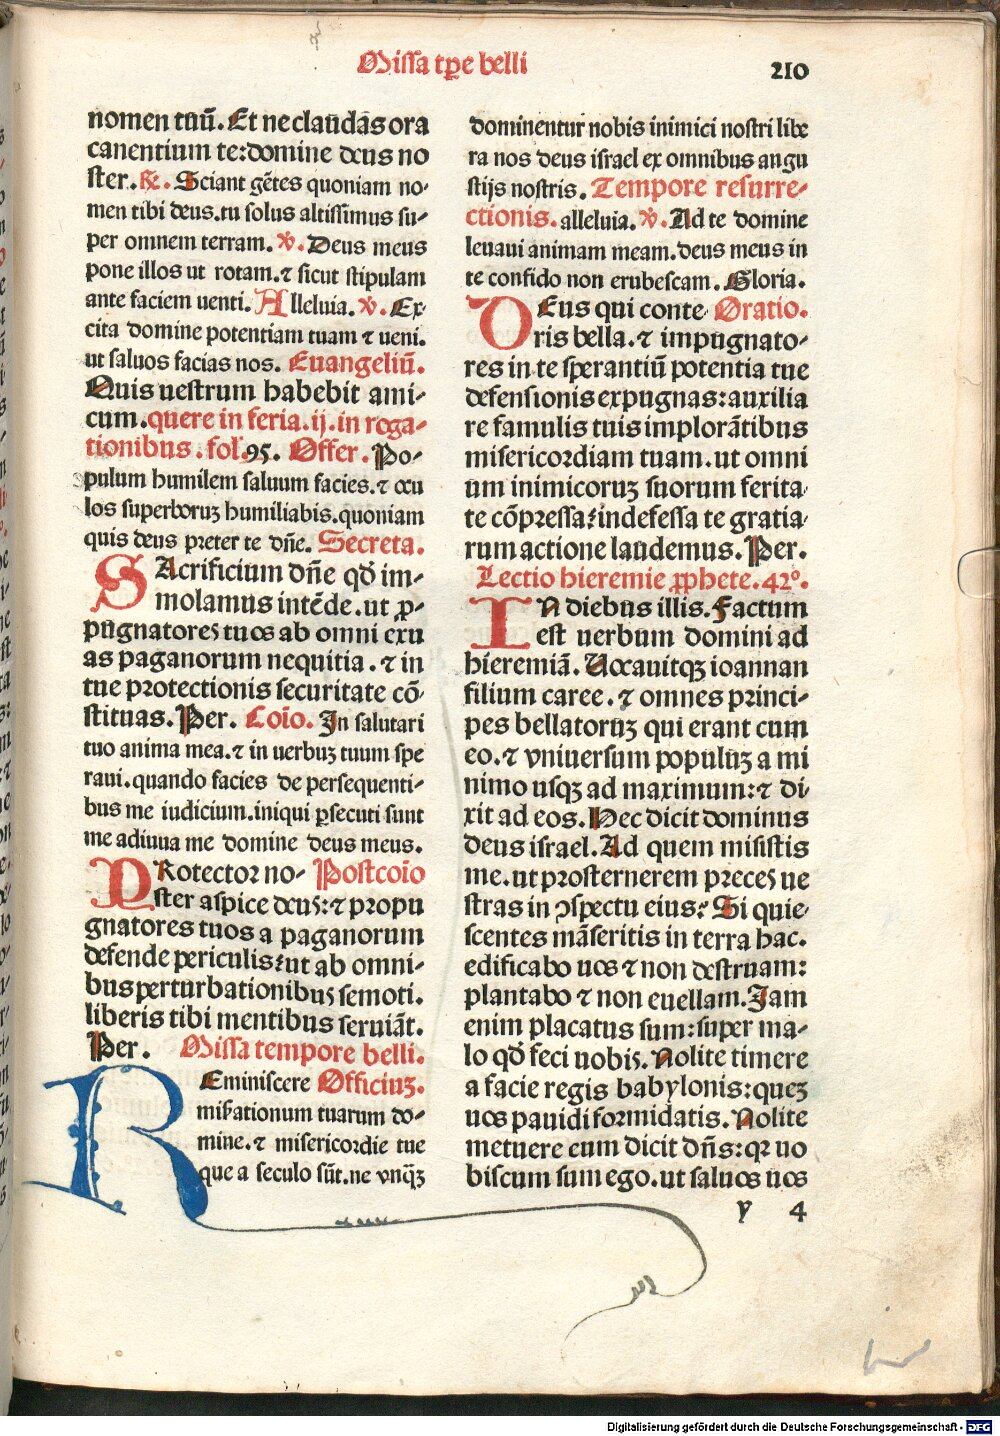 Missa tꝑe belli
210
nomen tuū. Et ne claudas ora
canentium te: domine deus no
ster. ℞. Sciant gētes quoniam no-
men tibi deus. tu solus altissimus su-
per omnem terram. ℣. Deus meus
pone illos ut rotam. ⁊ sicut stipulam
ante faciem uenti. Alleluia. ℣. Ex
cita domine potentiam tuam ⁊ ueni.
ut saluos facias nos. Euangeliū.
Quis uestrum habebit ami-
cum. quere in feria. ij. in roga-
tionibus. fol. 95. Offer. Po-
pulum humilem saluum facies. ⁊ ocu
los superboruꝫ humiliabis. quoniam
quis deus preter te dn̄e. Secreta.
SAcrificium dn̄e qđ im-
molamus intēde. ut ꝓ-
pugnatores tuos ab omni exu
as paganorum nequitia. ⁊ in
tue protectionis securitate cō-
stituas. Per. Coīo. In salutari
tuo anima mea. ⁊ in uerbuꝫ tuum spe
raui. quando facies de persequenti-
bus me iudicium. iniqui ꝑsecuti sunt
me adiuua me domine deus meus.
PRotector no- Postcoīo
ster aspice deus: ⁊ propu
gnatores tuos a paganorum
defende periculis: ut ab omni-
bus perturbationibus semoti.
liberis tibi mentibus seruiāt.
Per. Missa tempore belli.
REminiscere Officiuꝫ.
mis̄ationum tuarum do-
mine. ⁊ misericordie tue
que a seculo sūt. ne vnq̄ꝫ
dominentur nobis inimici nostri libe
ra nos deus israel ex omnibus angu
stijs nostris. Tempore resurre-
ctionis. alleluia. ℣. Ad te domine
leuaui animam meam. deus meus in
te confido non erubescam. Gloria.
DEus qui conte- Oratio.
ris bella. ⁊ impugnato-
res in te sperantiū potentia tue
defensionis expugnas: auxilia
re famulis tuis implorātibus
misericordiam tuam. ut omni
um inimicoruꝫ suorum ferita-
te cōpressa: indefessa te gratia-
rum actione laudemus. Per.
Lectio hieremie ꝓphete. 42º.
IN diebus illis. Factum
est uerbum domini ad
hieremiā. Uocauitqꝫ ioannan
filium caree. ⁊ omnes princi-
pes bellatoruꝫ qui erant cum
eo. ⁊ vniuersum populuꝫ a mi
nimo usqꝫ ad maximum: ⁊ di-
xit ad eos. Hec dicit dominus
deus israel. Ad quem misistis
me. ut prosternerem preces ue
stras in ꝯspectu eius: Si quie-
scentes māseritis in terra hac.
edificabo uos ⁊ non destruam:
plantabo ⁊ non euellam. Jam
enim placatus sum: super ma-
lo qđ feci uobis. Nolite timere
a facie regis babylonis: queꝫ
uos pauidi formidatis. Nolite
metuere eum dicit dn̄s: qꝛ uo
biscum sum ego. ut saluos uos
y 4
Digitalisierung gefördert durch die Deutsche Forschungsgemeinschaft - DFG